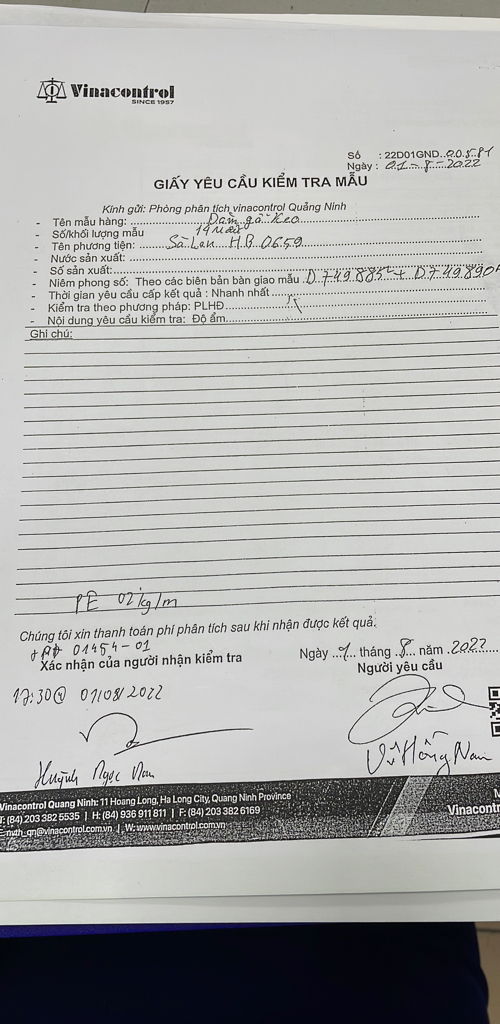 Vinacontrol
SINCE 1957
Số : 22D01GND..00581
Ngày : 01-8-2022
GIẤY YÊU CẦU KIỂM TRA MẪU
Kính gửi: Phòng phân tích vinacontrol Quảng Ninh
- Tên mẫu hàng: Dăm gỗ keo
- Số/khối lượng mẫu
- Tên phương tiện: Sà Lan H.B 0659
- Nước sản xuất:
- Số sản xuất:
- Niêm phong số: Theo các biên bản bàn giao mẫu
- Thời gian yêu cầu cấp kết quả : Nhanh nhất
- Kiểm tra theo phương pháp: PLHĐ
- Nội dung yêu cầu kiểm tra: Độ ẩm
Ghi chú:
PE 02 kg/m
Chúng tôi xin thanh toán phí phân tích sau khi nhận được kết quả.
01454-01
Xác nhận của người nhận kiểm tra
Ngày 1 tháng 8 năm 2022
Người yêu cầu
17:30 01/08/2022
Huỳnh Ngọc
Vũ Hồng Nam
Vinacontrol Quang Ninh: 11 Hoang Long, Ha Long City, Quang Ninh Province
T: (84) 203 382 5535 | H: (84) 936 911 811 | F: (84) 203 382 6169
_qn@vinacontrol.com.vn | W: www.vinacontrol.com.vn